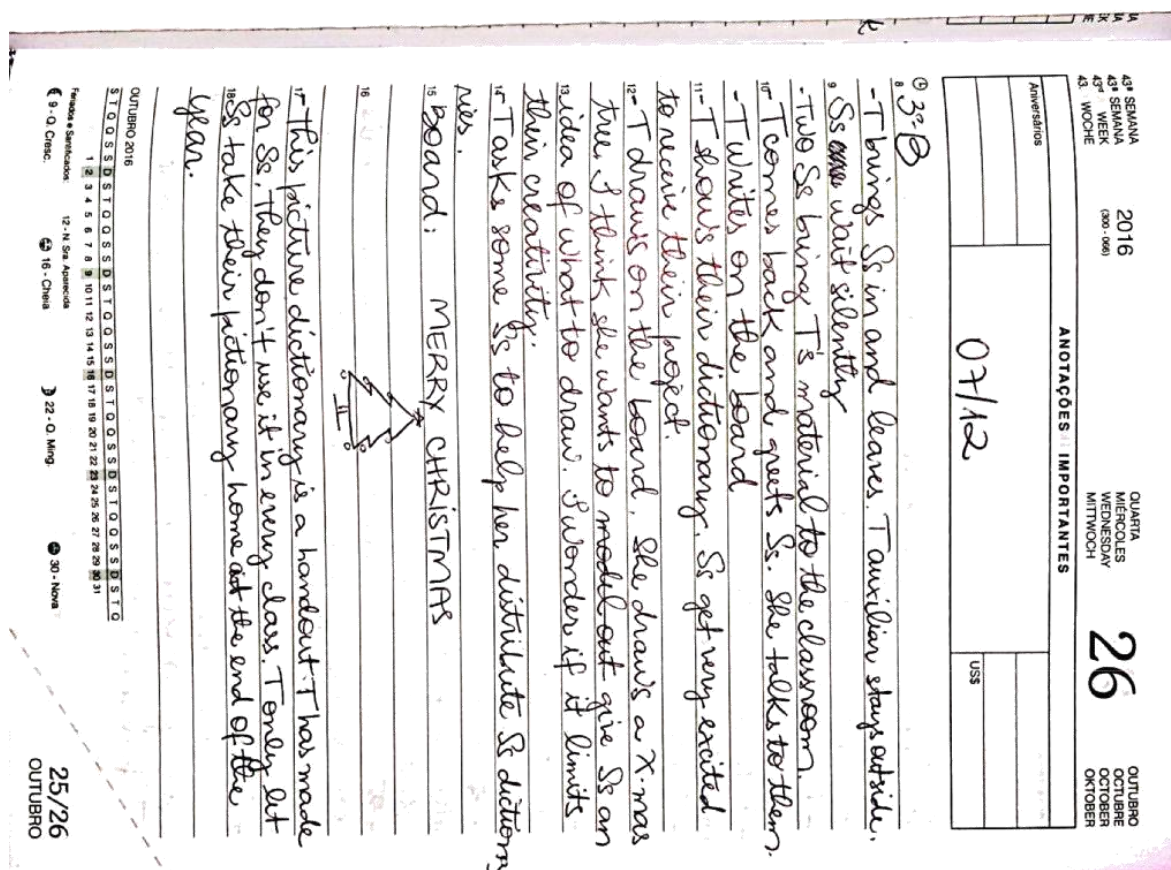 43ª SEMANA
43ª SEMANA
43rd WEEK
43. WOCHE
2016
(300 - 066)
QUARTA
MIÉRCOLES
WEDNESDAY
MITTWOCH
26
OUTUBRO
OCTUBRE
OCTOBER
OKTOBER
ANOTAÇÕES IMPORTANTES
Aniversários
07/12
US$
3º B
8 - T brings Ss in and leaves. T auxiliar stays outside.
9 Ss wait silently
- Two Ss bring T's material to the classroom.
10 - T comes back and greets Ss. She talks to them.
- T writes on the board
11 - T shows their dictionary. Ss get very excited
to receive their project.
12 - T draws on the board. She draws a X-mas
tree. I think she wants to model out give Ss an
13 idea of what to draw. I wonder if it limits
their creativity.
14 - T asks some Ss to help her distribute Ss dictiona
ries.
15 Board: MERRY CHRISTMAS
16
17 - This picture dictionary is a handout T has made
for Ss. They don't use it in every class. T only let
18 Ss take their pictionary home at the end of the
year.
OUTUBRO 2016
S T Q Q S S D S T Q Q S S D S T Q Q S S D S T Q Q S S D S T Q
1 2 3 4 5 6 7 8 9 10 11 12 13 14 15 16 17 18 19 20 21 22 23 24 25 26 27 28 29 30 31
Feriados e Santificados: 12 - N. Sra. Aparecida
9 - Q. Cresc. 16 - Cheia 22 - Q. Ming. 30 - Nova
25/26
OUTUBRO